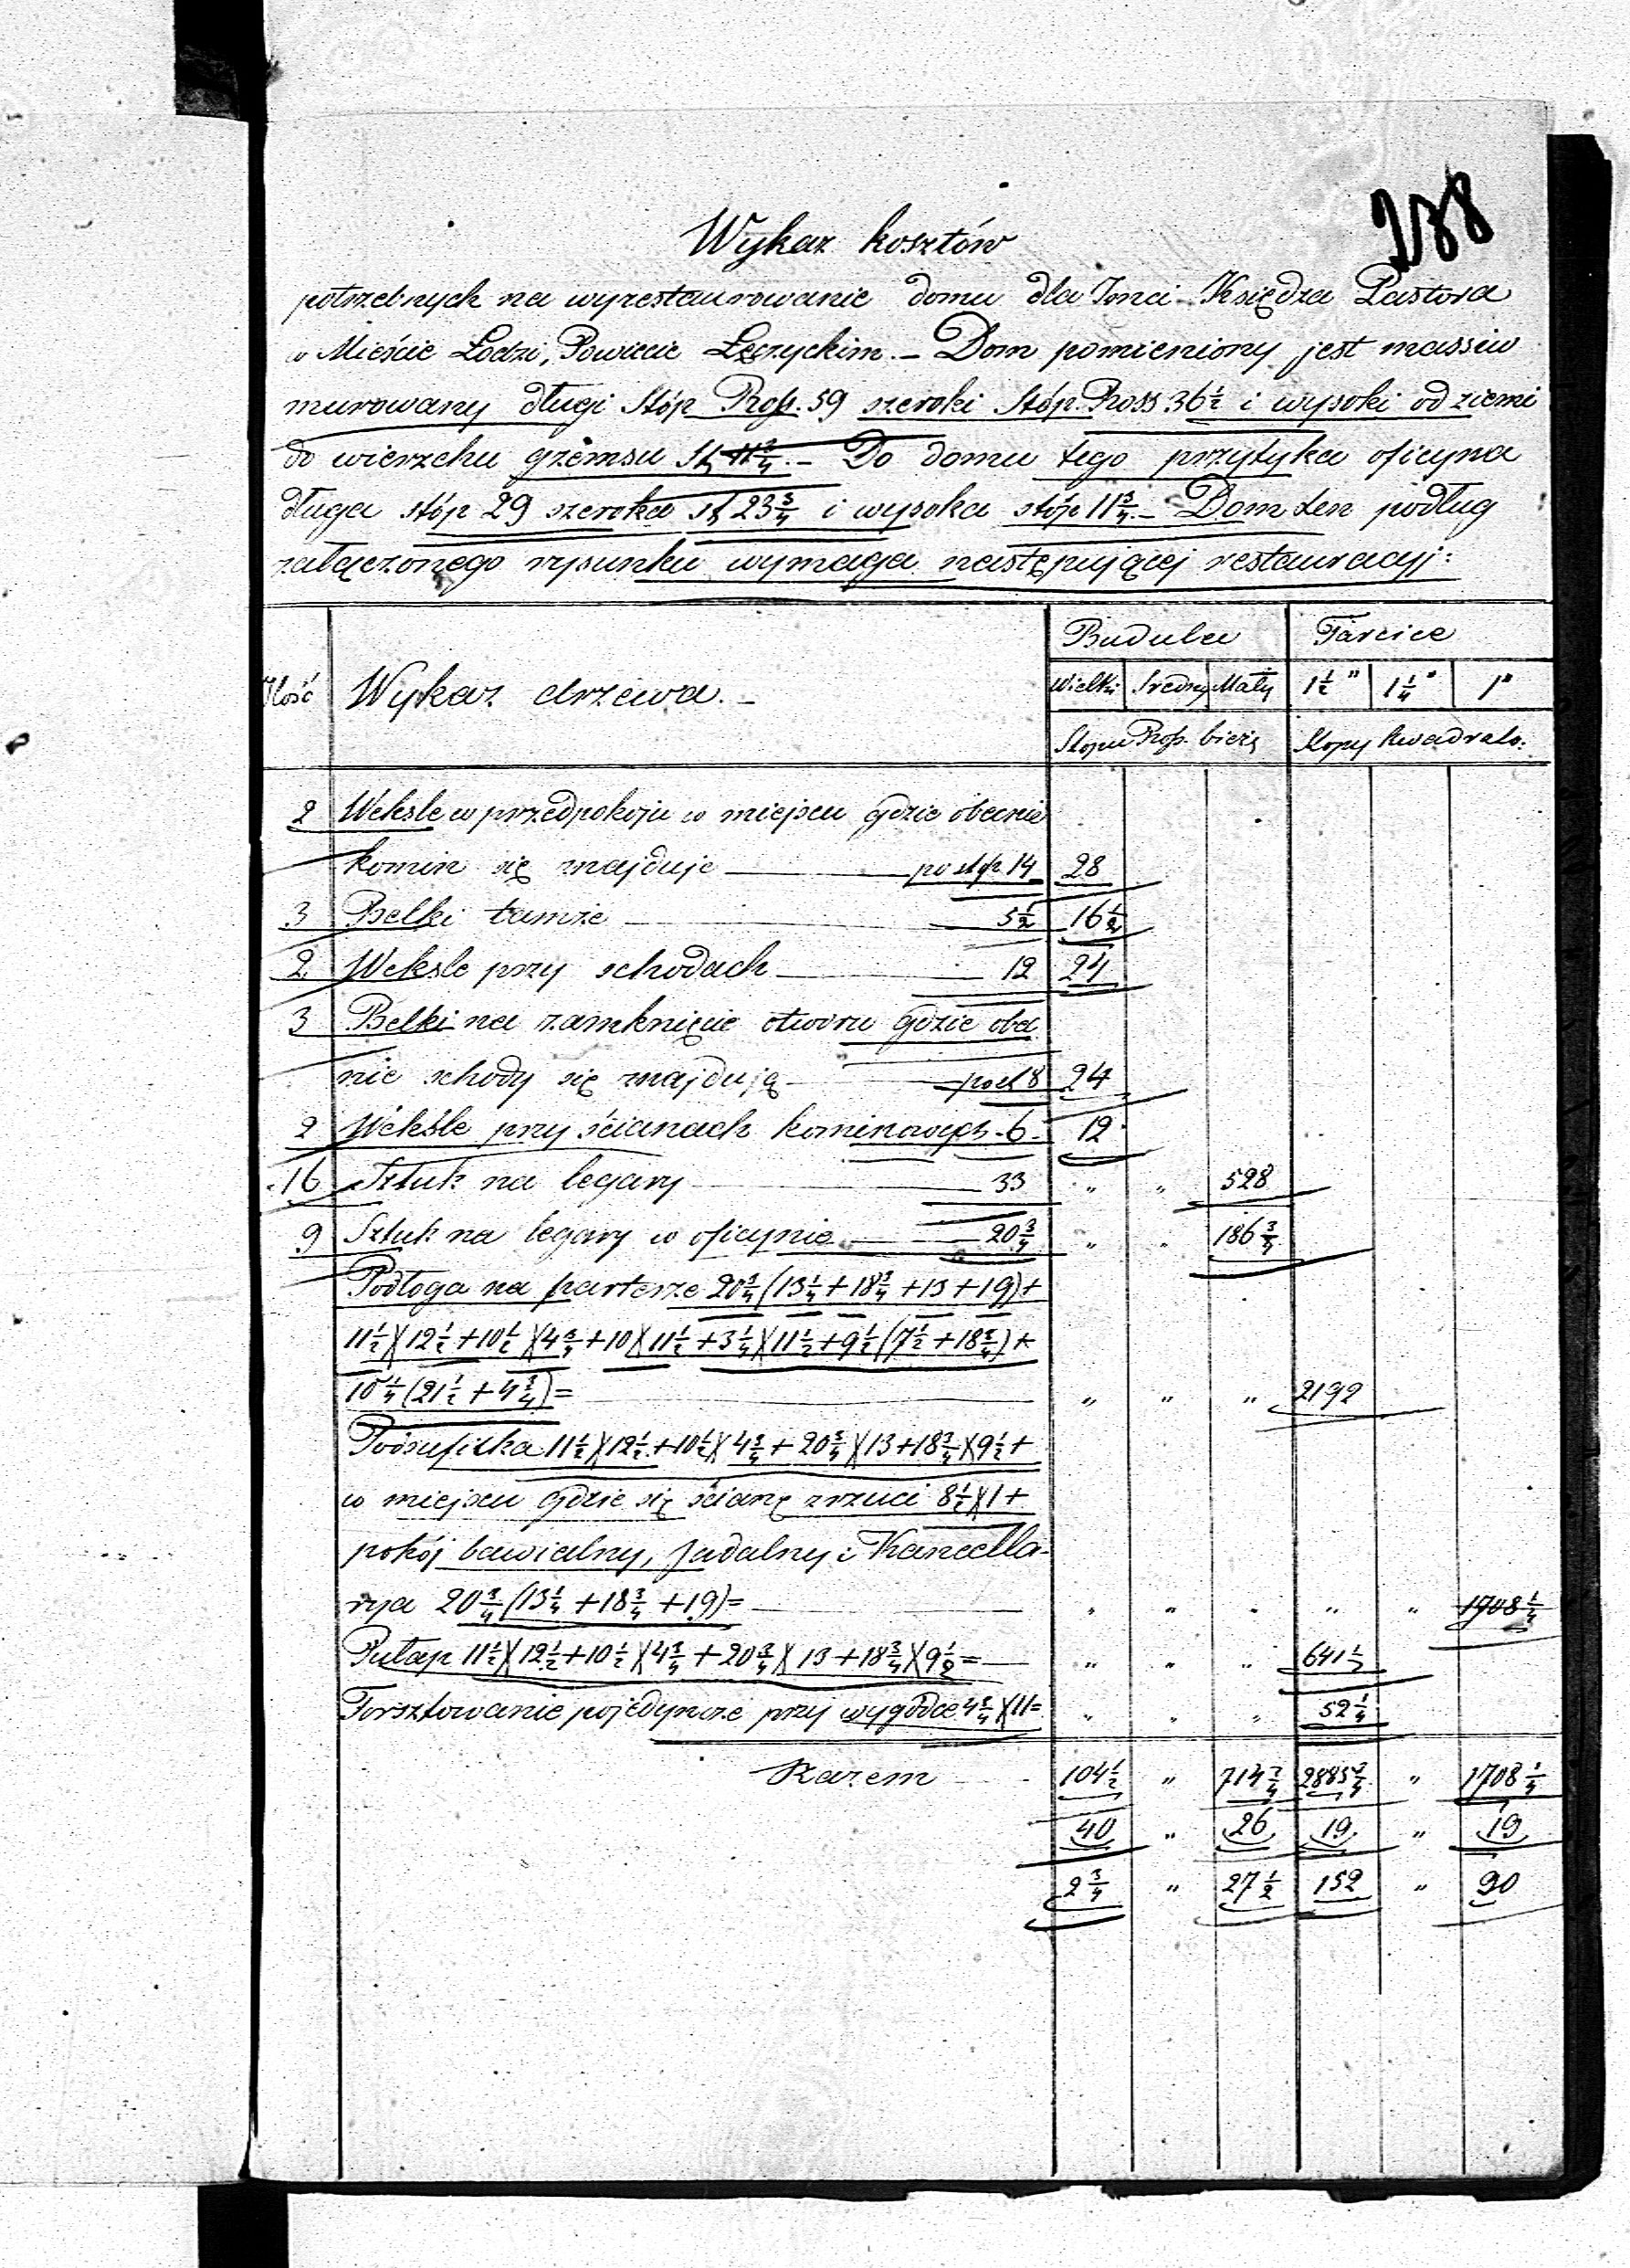 238
Wykaz kosztów
potrzebnych na wyrestaurowanie domu dla Jmci Księdza Pastora
w Mieście Łodzi, Powiecie Łęczyckim. – Dom pomieniony jest massiw
murowany długi stóp Pross. 59 szeroki stóp. Pross 36 1/2 i wysoki od ziemi
do wierzchu gzemsu st 11 3/4. – Do domu tego przytyka oficyna
długa stóp 29 szeroka st 23 3/4 i wysoka stóp 11 3/4. – Dom ten podług
załączonego rysunku wymaga następującej restauracyj:
Budulcu Tarcice
Ilość Wykaz drzewa. –
Wielki Średny Mały 1 1/2 " 1 1/4 " 1"
Stopu Pross. bieżą Stopy kwadrato:
2 Weksle w przedpokoju w miejscu gdzie obecnie
komin się znajduje po stóp 14 28
3 Belki tamże 5 1/2 16 1/2
2 Weksle przy schodach 12 24
3 Belki na zamknięcie otworu gdzie obec
nie schody się znajdują po st 8 24
2 Weksle przy ścianach kominowych - 6 - 12
16 Sztuk na legary 33 " " 528
9 Sztuk na legary w oficynie 20 3/4 " " 186 3/4
Podłoga na parterze 20 3/4 (13 1/4 + 18 3/4 + 13 + 19) +
11 1/2 X 12 1/2 + 10 1/2 X 4 3/4 + 10 X 11 1/2 + 3 1/4 X 11 1/2 + 9 1/2 (7 1/2 + 18 3/4) +
10 1/4 (21 1/2 + 4 3/4) = " " " 2192
Podsufitka 11 1/2 X 12 1/2 + 10 1/2 X 4 3/4 + 20 3/4 X 13 + 18 3/4 X 9 1/2 +
w miejscu gdzie się ścianę zrzuci 8 1/2 X 1 +
pokój bawialny, jadalny i Kancella-
rya 20 3/4 (13 1/4 + 18 3/4 + 19) = " " " " " 1708 1/4
Pułap 11 1/2 X 12 1/2 + 10 1/2 X 4 3/4 + 20 3/4 X 13 + 18 3/4 X 9 1/2 = " " " 641 1/2
Forsztowanie pojedyncze przy wygódce 4 3/4 X 11 = " " " 52 1/4
Razem 104 1/2 " 714 3/4 2885 3/4 " 1708 1/4
40 " 26 19 " 19
2 3/4 " 27 1/2 152 " 90